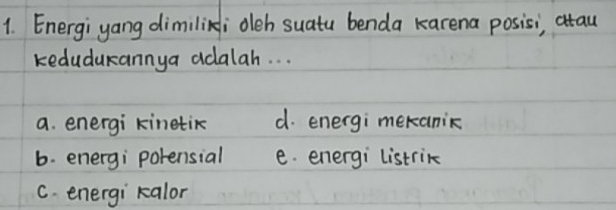 1. Energi yang dimiliki oleh suatu benda karena posisi, atau
kedudukannya adalah ...
a. energi kinetik d. energi mekanik
b. energi potensial e. energi listrik
c. energi kalor